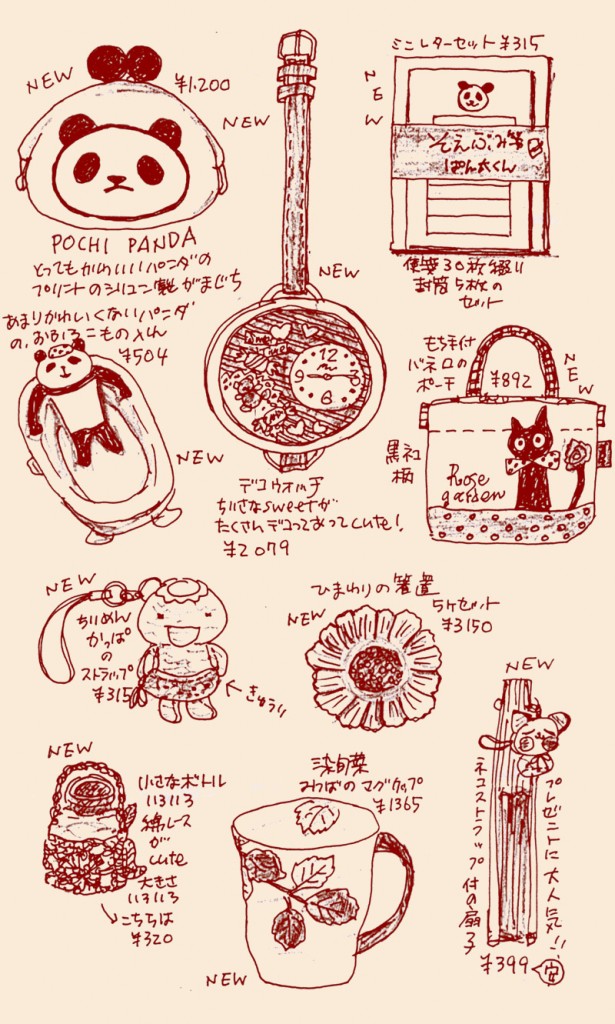 NEW
¥1.200
POCHI PANDA
とってもかわいいパンダの
プリントのシリコン製がまぐち
NEW
NEW
デコウォッチ
ちいさなsweetが
たくさんデコってあってcute!
¥2079
ミニレターセット ¥315
NEW
そえぶみ箋
ぱん太くん
便箋30枚綴り
封筒5枚の
セット
あまりかわいくないパンダ
の、おもしろこもの入れ
¥504
NEW
もち手付
バネ口の
ポーチ
¥892
NEW
黒ネコ
柄
Rose
garden
NEW
ちりめん
かっぱ
の
ストラップ
¥315
←きゅうり
ひまわりの箸置
5ヶセット
¥3150
NEW
NEW
小さなボトル
いろいろ
綿レース
が
cute
大きさ
いろいろ
→こちらは
¥320
染旬菜
みつばのマグカップ
¥1365
NEW
NEW
プレゼントに大人気!!
ネコストラップ付の扇子
¥399
安